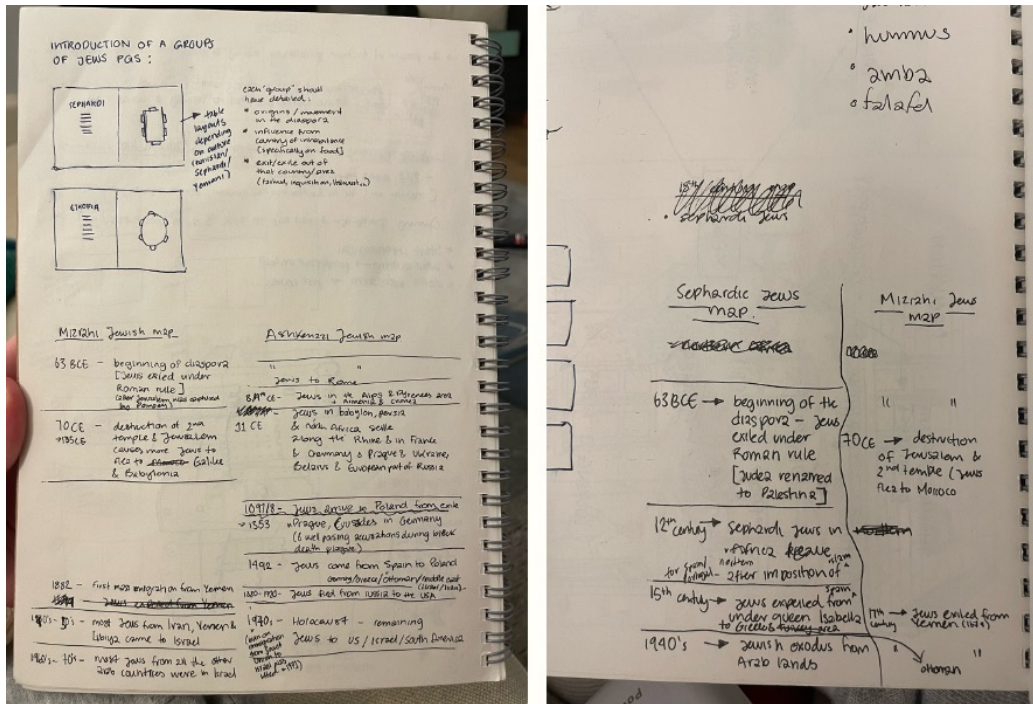 INTRODUCTION OF A GROUPS
OF JEWS PGS :
SEPHARDI
table
layouts
depending
on culture
Sephardi/
Yemani)
each 'group' should
have detailed:
* origins / movement
in the diaspora
* influence from
country of inhabitance
[specifically on food]
* exit/exile out of
that country/area
(formed, inquisition,
ETHIOPIA
Mizrahi Jewish map
63 BCE - beginning of diaspora
[Jews exiled under
Roman rule]
(after Jerusalem was captured
by Pompey)
70CE - destruction of 2nd
temple & Jerusalem
causes more Jews to
flee to Galilee
& Babylonia
1882 - first mass emigration from Yemen
Jews expelled from Yemen
most Jews from Iran, Yemen &
Libya came to Israel
1960's - 70's - most Jews from all the other
countries were in Israel
Ashkenazi Jewish map
" "
Jews to Rome
CE - Jews in the Alps & Pyrenees area
+ Armenia & Crimea
11 CE
- Jews in babylon, persia
& north Africa settle
along the Rhine & in France
& Germany & Prague & Ukraine,
Belarus & European part of Russia
- Jews arrive in Poland from
1353
Prague, Crusades in Germany
accusations during black
death plague)
1492 - Jews come from Spain to Poland
(Israel/Iran)
- Jews fled from russia to the USA
- Holocaust - remaining
Jews to US / Israel / South America
• hummus
• amba
• falafel
• sephardi jews
Sephardic Jews
map.
63BCE → beginning of the
diaspora - Jews
exiled under
Roman rule
[Judea renamed
to Palestina]
12th century → Sephardi Jews in
northern Africa leave
for Spain/
- after imposition of islam
15th century → Jews expelled from Spain
under queen Isabella
to Greece
1940's → Jewish exodus from
Arab lands
Mizrahi Jews
map
" "
70CE → destruction
of Jerusalem &
2nd temple (Jews
flee to Morroco
17th century → Jews exiled from
Yemen
" "
ottoman